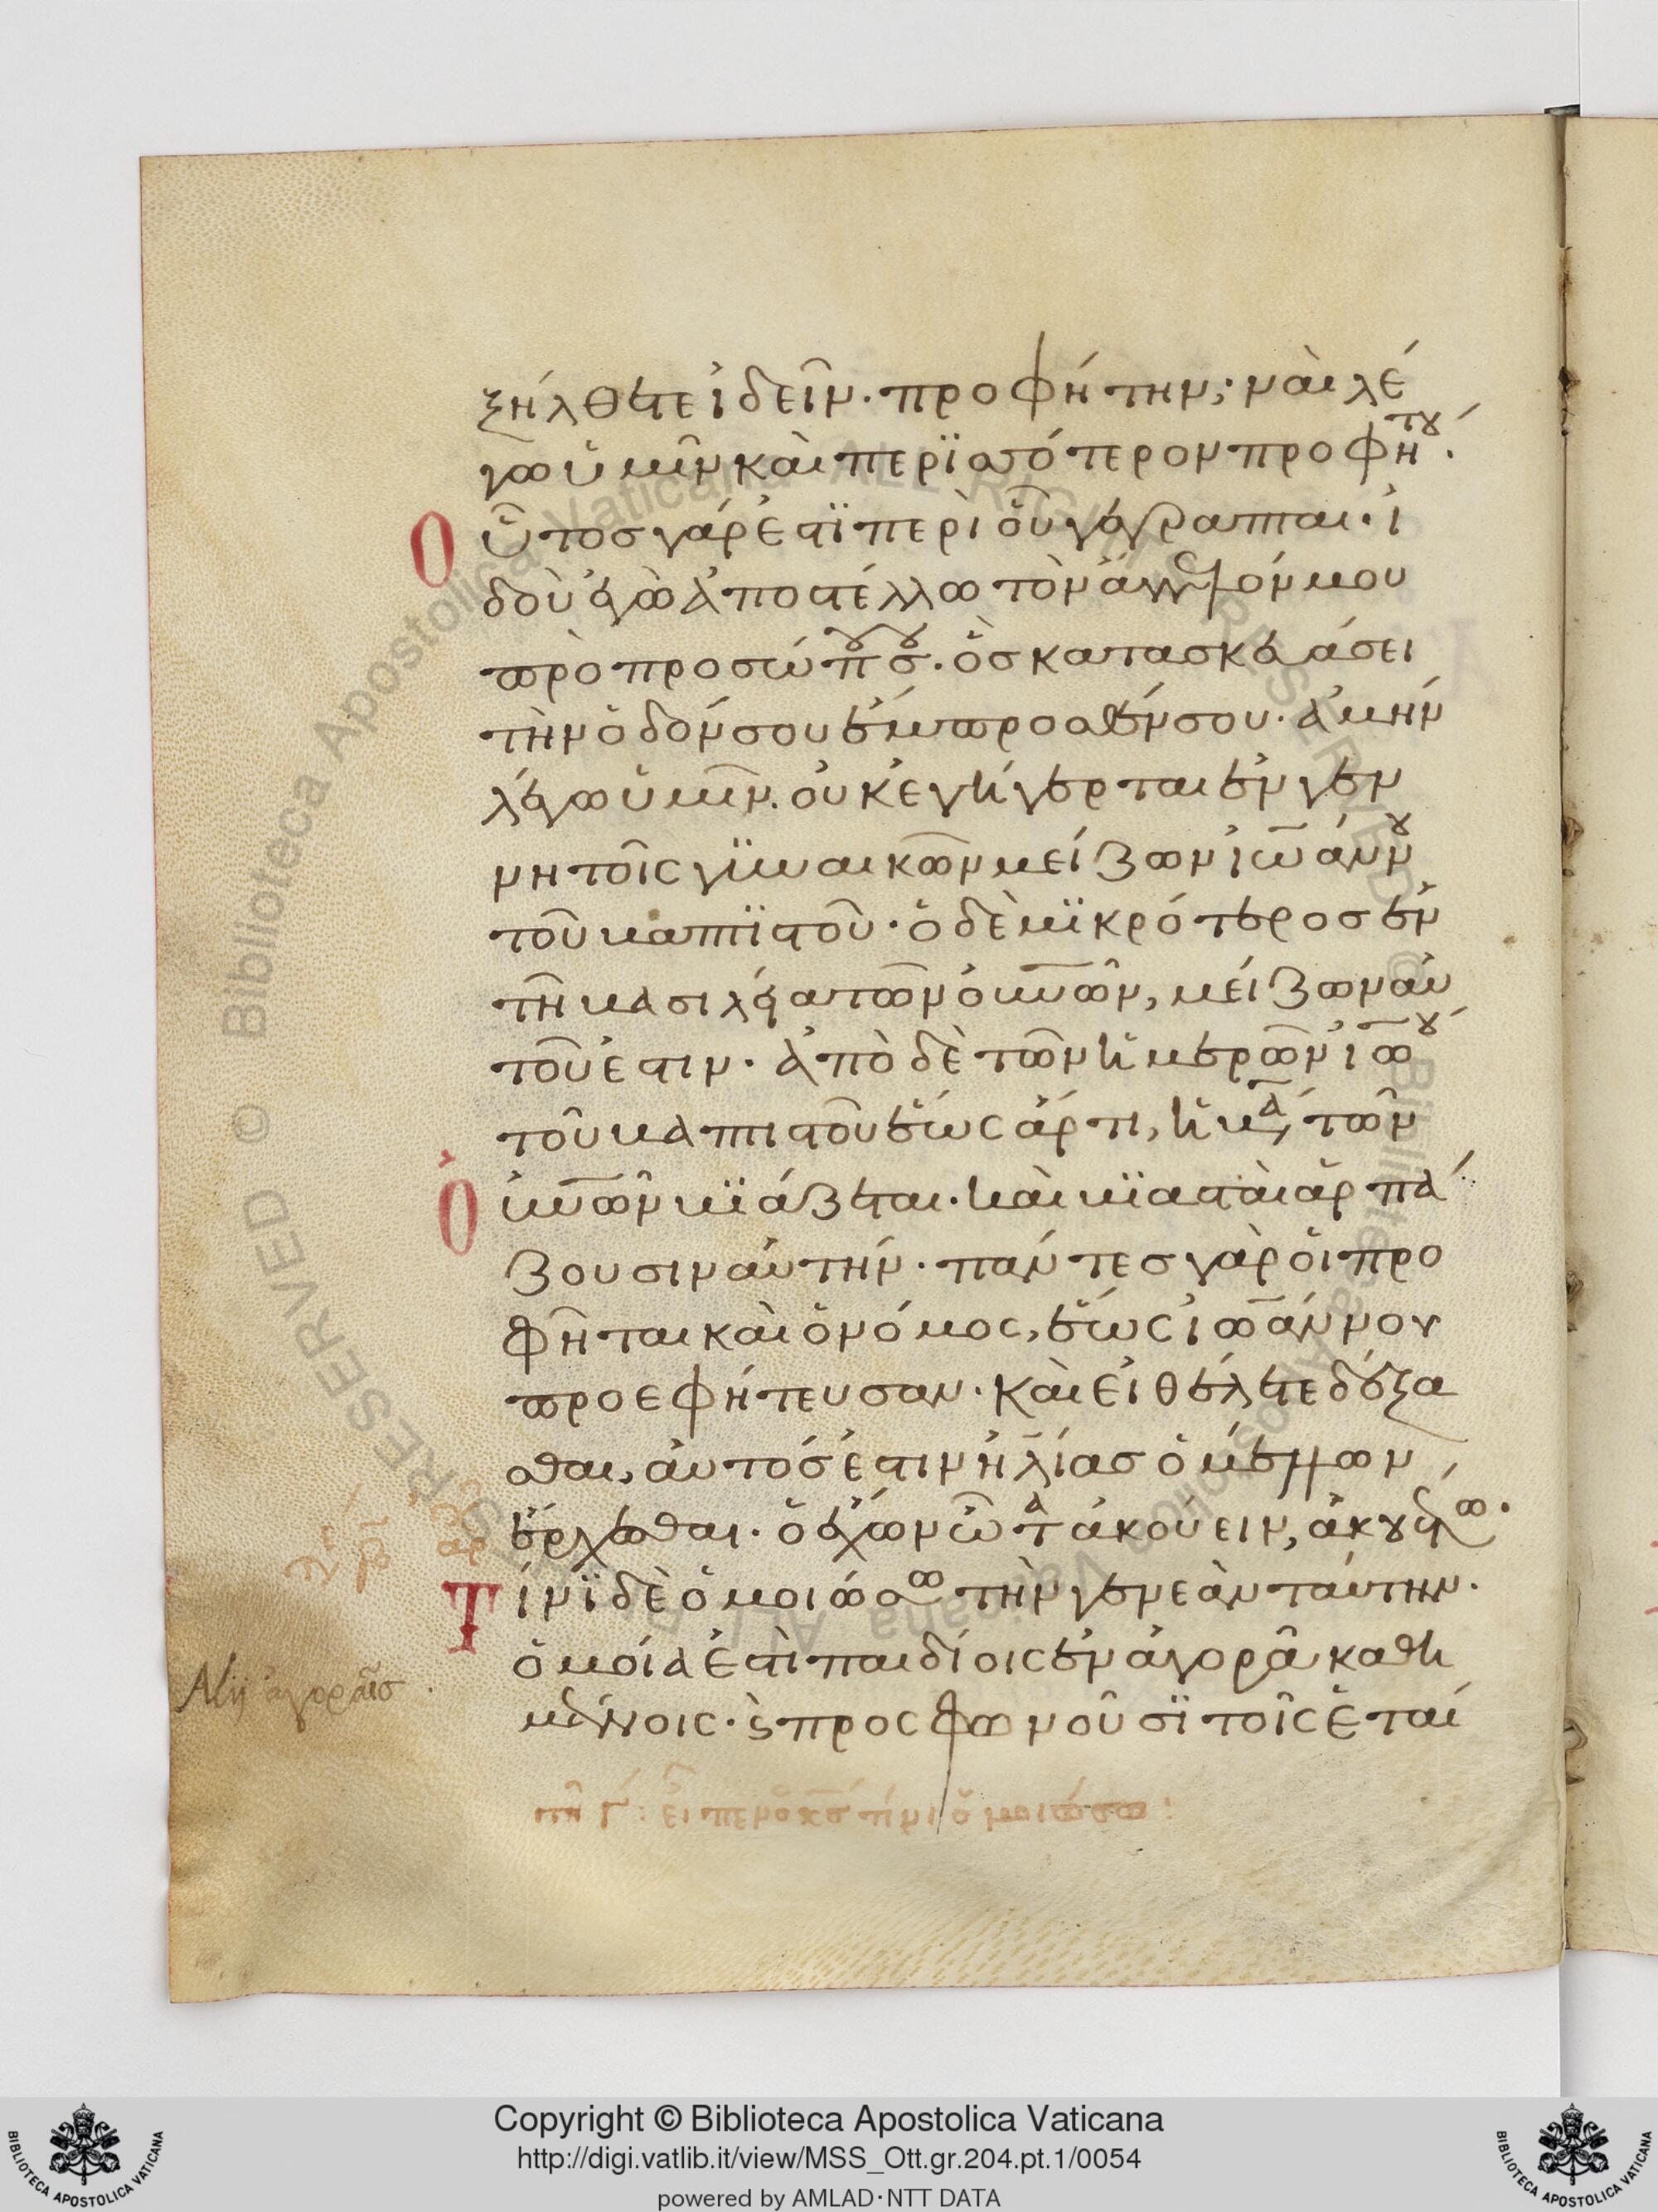 ξήλθετε ἰδεῖν· προφήτην; ναὶ λέ
γω ὑμῖν καὶ περϊσσότερον προφήτου·
Οὗτος γάρ ἐστϊ περὶ οὗ γέγραπται· ἰ
δοὺ ἐγὼ ἀποστέλλω τὸν ἄγγελόν μου
πρὸ προσώπου σου· ὃς κατασκευάσει
τὴν ὁδόν σου ἔμπροσθέν σου· ἀμήν
λέγω ὑμῖν· οὐκ ἐγήγερται ἐν γεν
νητοῖς γϋναικῶν μείζων ἰωάννου
τοῦ βαπτϊστοῦ· ὁ δὲ μϊκρότερος ἐν
τῆ βασιλεία τῶν οὐνῶν, μείζων αὐ
τοῦ ἐστιν· ἀπὸ δὲ τῶν ἡμερῶν ἰω̅ου
τοῦ βαπτιστοῦ ἕως ἄρτι, ἡ βα τῶν
Οὐνῶν βϊάζεται· καὶ βϊασταὶ ἁρπά
ζουσιν αὐτήν· πάντες γὰρ οἱ προ
φῆται καὶ ὁ νόμος, ἕως ἰωάννου
προεφήτευσαν· καὶ εἰ θέλετε δέξα
σθαι, αὐτός ἐστιν ἠλίας ὁ μέλλων
ἔρχεσθαι· ὁ ἔχων ὦτα ἀκούειν, ἀκουέτω·
Τίνϊ δὲ ὁμοιώσω τὴν γενεὰν ταύτην·
ὁμοία ἐστὶ παιδίοις ἐν ἀγορᾶ καθη
μένοις· ϛ προσφωνοῦσϊ τοῖς ἑταί
Alij ἀγοραῖσ
εἶπεν ὁ κς τίνι ὁμοιώσω:
Copyright © Biblioteca Apostolica Vaticana
http://digi.vatlib.it/view/MSS_Ott.gr.204.pt.1/0054
powered by AMLAD·NTT DATA
BIBLIOTECA APOSTOLICA VATICANA
BIBLIOTECA APOSTOLICA VATICANA